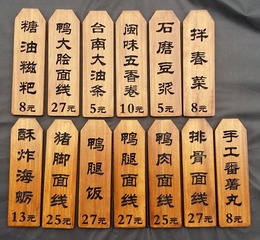 糖油糍粑
8元
鸭大脍面线
27元
台南大油条
5元
闽味五香卷
10元
石磨豆浆
5元
拌春菜
8元
酥炸海蛎
13元
猪脚面线
25元
鸭腿饭
27元
鸭腿面线
27元
鸭肉面线
25元
排骨面线
27元
手工番薯丸
8元